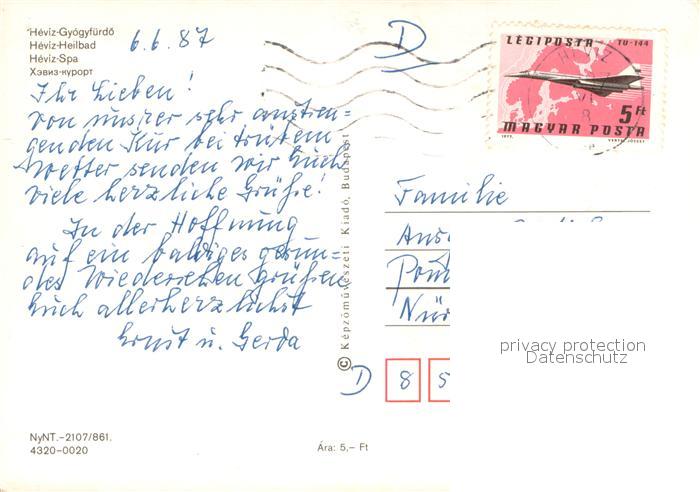 Hévíz-Gyógyfürdő
Hévíz-Heilbad
Hévíz-Spa
Хэвиз-курорт
6.6.87
Ihr Lieben!
Von unsrer sehr anstren=
genden Kur bei trübem
Wetter senden wir Euch
viele herzliche Grüße.
In der Hoffnung
auf ein baldiges gesun=
des Wiedersehen grüßen
Euch allerherzlichst
Ernst u. Gerda
NyNT.–2107/861.
4320–0020
Ára: 5,– Ft
© Képzőművészeti Kiadó, Budapest
D
LÉGIPOSTA TU-144
HÉVÍZ
5 Ft
MAGYAR POSTA
1977.
Familie
D 8 5
privacy protection
Datenschutz